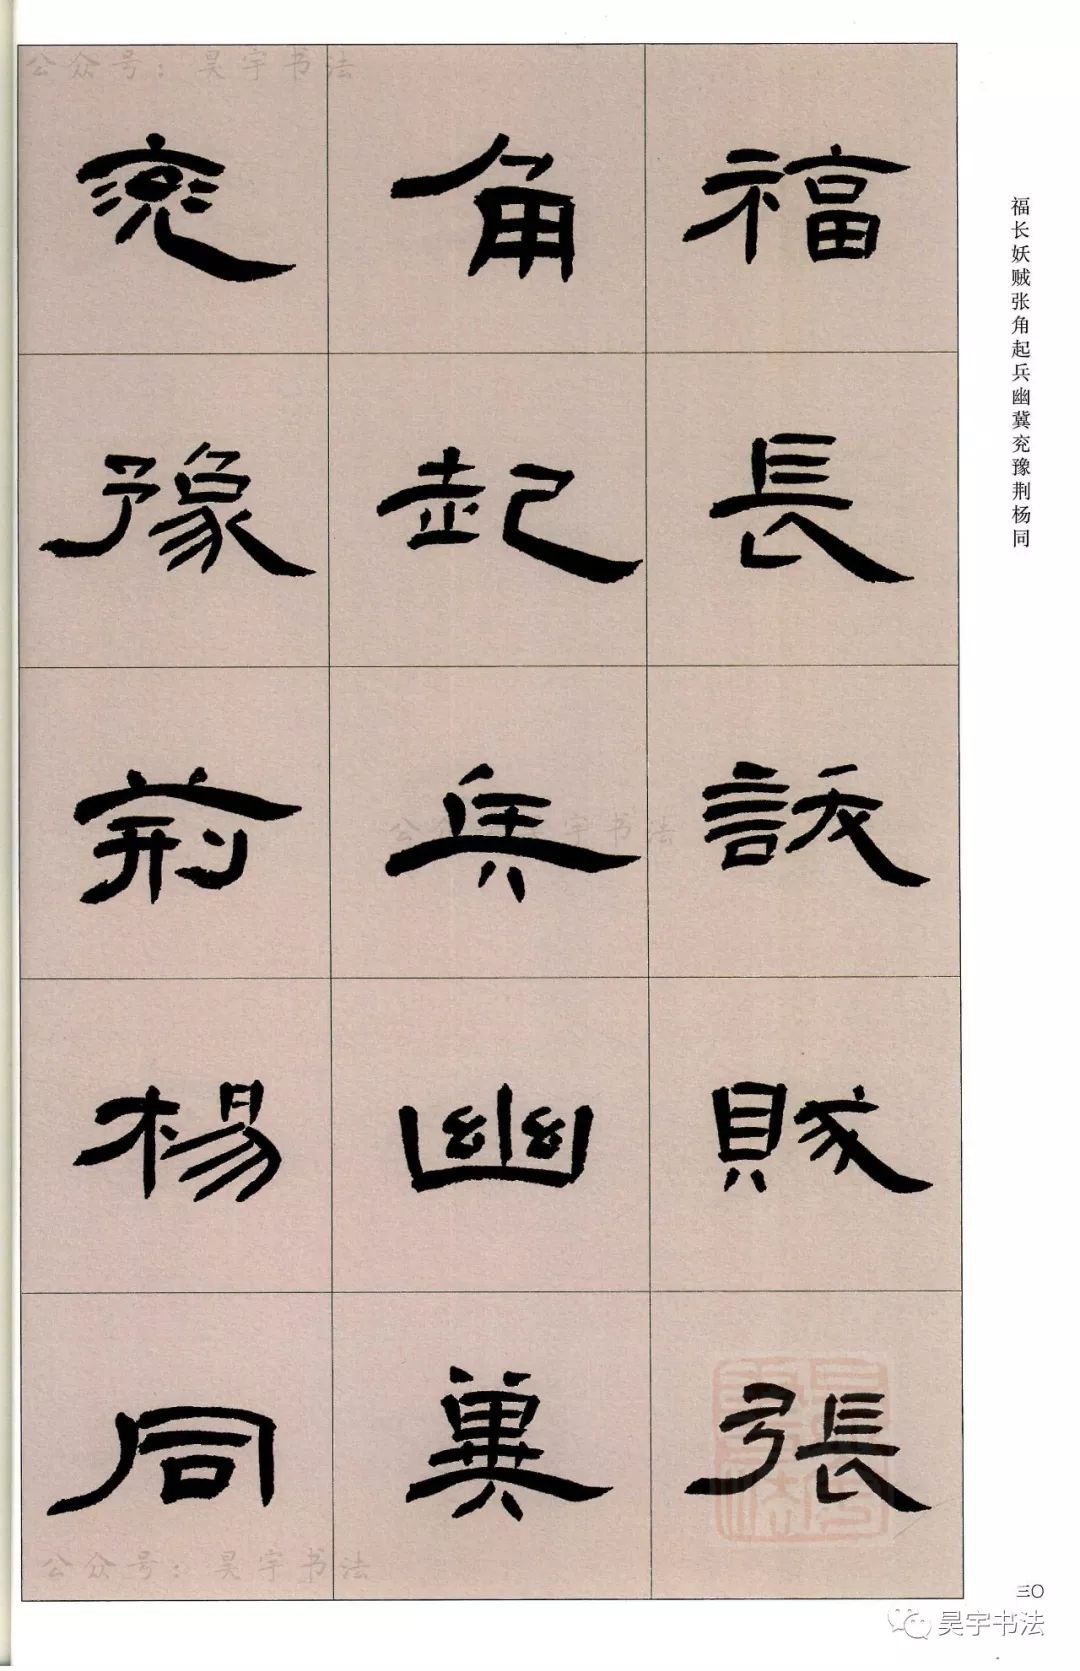 公众号：昊宇书法
福長訞賊張
角起兵幽冀
兖豫荊楊同
福长妖贼张角起兵幽冀兖豫荆杨同
公众号：昊宇书法
公众号：昊宇书法
三〇
昊宇书法